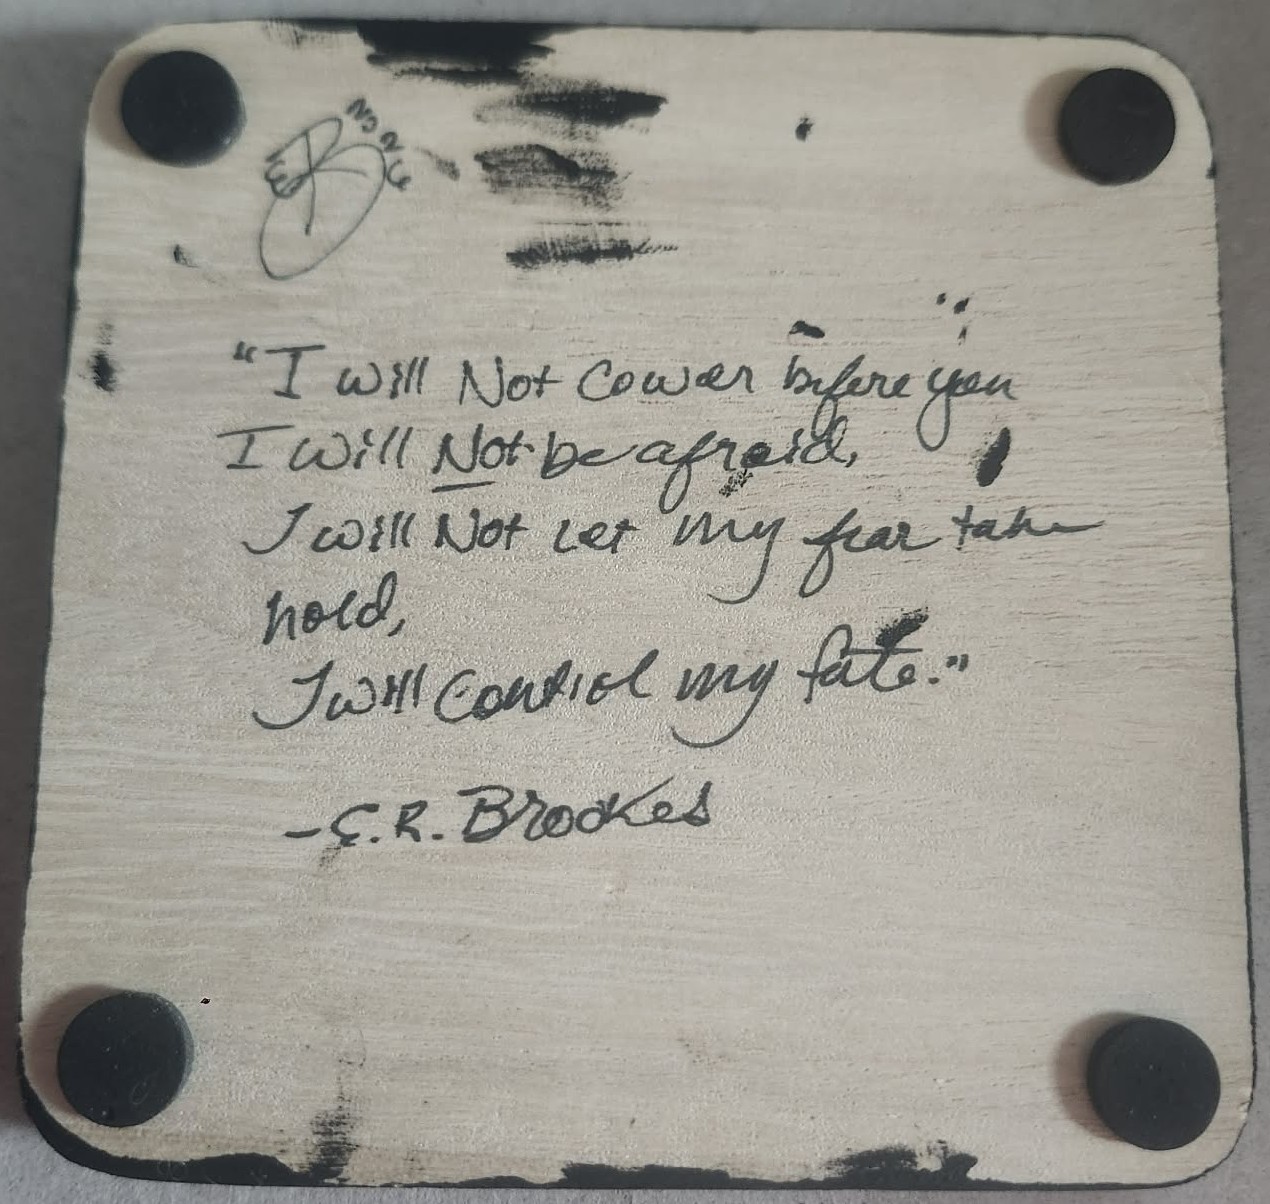 ERB 2026
"I will Not Cower before you
I will Not be afraid,
I will Not Let my fear take
hold,
I will Control my fate."
-E.R. Brookes